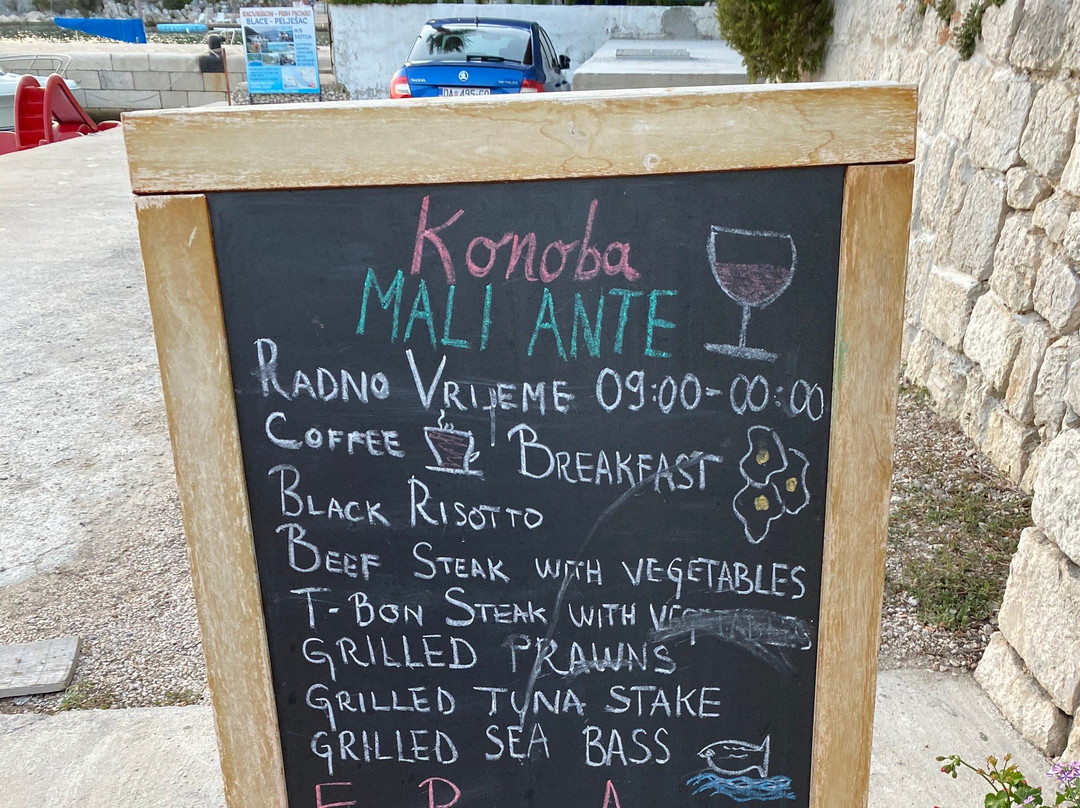 EXCURSION - FISH PICNIC
BLACE - PELJEŠAC
Konoba
MALI ANTE
RADNO VRIJEME 09:00-00:00
COFFEE BREAKFAST
BLACK RISOTTO
BEEF STEAK WITH VEGETABLES
T-BON STEAK WITH VEGETABLES
GRILLED PRAWNS
GRILLED TUNA STAKE
GRILLED SEA BASS